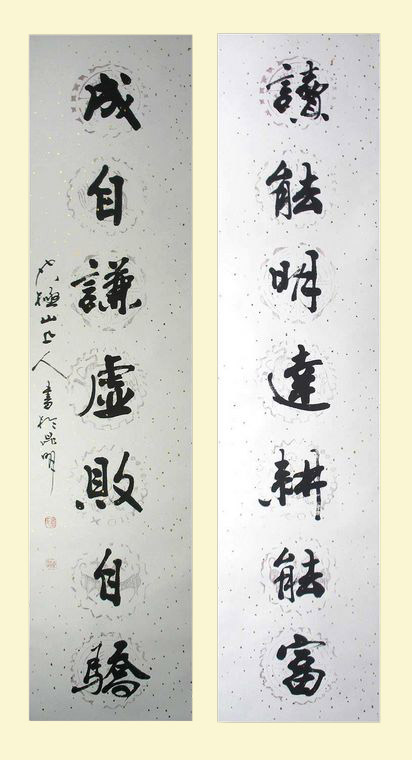 讀能明達耕能富
成自謙虛敗自驕
山上人
書於昆明